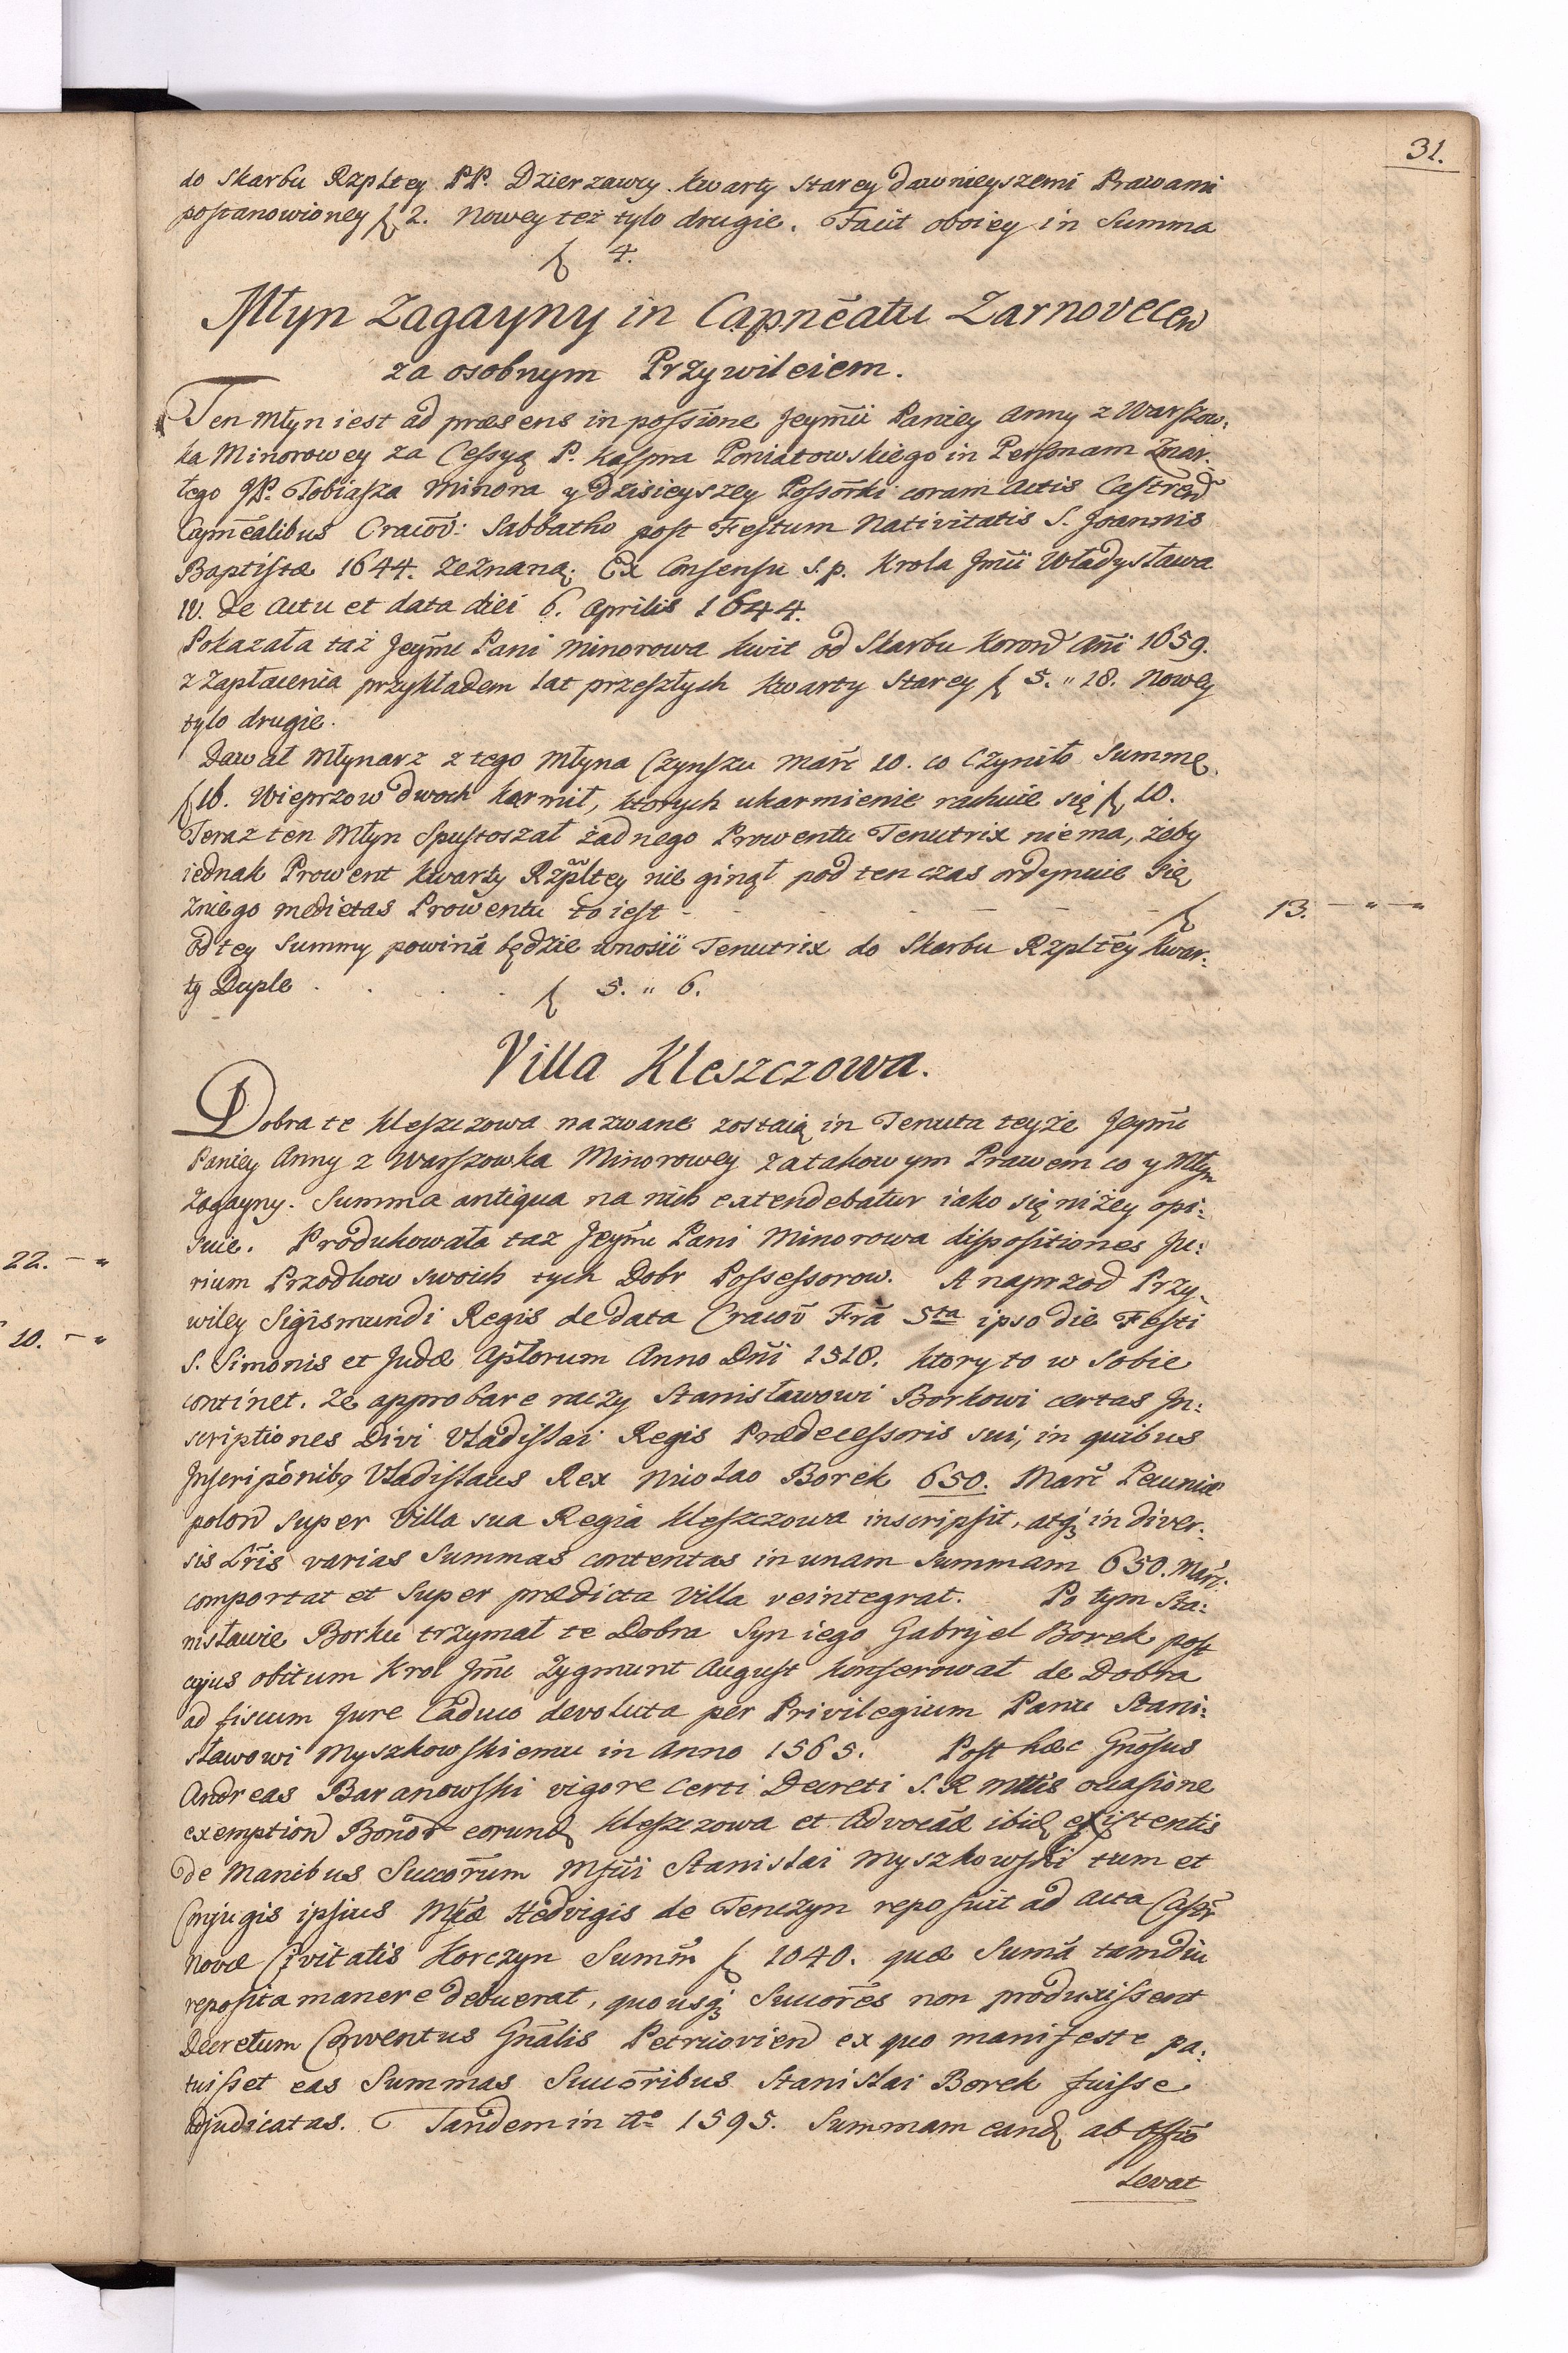 31.
do Skarbu Rzpltey PP. Dzierzawcy Kwarty starey dawnieyszemi Prawami
postanowioney f 2. Nowey też tylo drugie. Facit oboiey in Summa
f 4.
Młyn Zagayny in Capnēatu Zarnovecen
za osobnym Przywileiem.
Ten Młyn iest ad præsens in possione Jeymci Paniey Anny z Warszow-
ka Minorowey za Cessyą P. Kaspra Poniatowskiego in Personam Zmar-
łego JP. Tobiasza Minora y dzisieyszey Possōrki coram Actis Castren
Capnēalibus Cracov: Sabbatho post Festum Nativitatis S. Joannis
Baptistæ 1644. Zeznaną; Ex Consensu S.p. Krola Jmci Władysława
IV. De Actu et data diei 6. Aprilis 1644.
Pokazała taż Jeymc Pani Minorowa kwit od Skarbu Koron Ani 1659.
z Zapłacenia przykładem lat przeszłych Kwarty Starey f 5. " 18. Nowey
tylo drugie.
Dawał Młynarz z tego Młyna Czynszu Marc 10. co Czyniło Summę
f 16. Wieprzow dwoch karmił, ktorych ukarmienie rachuie się f 10.
Teraz ten Młyn Spustoszał żadnego Prowentu Tenutrix nie ma, żeby
iednak Prowent Kwarty Rzpltey nie ginął pod ten czas ordynuie się
zniego medietas Prowentu to iest - - - - - f 13. - " - "
od tey Summy powina będzie wnosić Tenutrix do Skarbu Rzpltey Kwar-
ty Duple . . . . f 5. " 6.
Villa Kleszczowa.
Dobra te Kleszczowa nazwane zostaią in Tenuta teyże Jeymc
Paniey Anny z Warszowka Minorowey za takowym Prawem co y Młyn
Zagayny. Summa antiqua na nich extendebatur iako się niżey opi-
suie. Produkowała taż Jeymc Pani Minorowa dispositiones Ju-
22. - "
rium Przodkow swoich tych Dobr Possessorow. A naprzod Przy-
wiley Sigismundi Regis de data Cracov Fra 5ta ipso die Festi
10. - "
S. Simonis et Judæ Aptorum Anno Dni 1518. ktory to w sobie
continet. Ze approbare raczy Stanisławowi Borkowi certas In-
scriptiones Divi Vladislai Regis Prædecessoris sui, in quibus
Inscriponib9 Vladislaus Rex Nicolao Borek 650. Marc Pecuniæ
polon super Villa sua Regia Kleszczowa inscripsit, atq3 in diver-
sis Lris varias Summas contentas in unam Summam 650. Marc.
comportat et super prædicta Villa reintegrat. Po tym Sta-
nisławie Borku trzymał te Dobra Syn iego Gabryel Borek post
cujus obitum Krol Jmc Zygmunt August konferował de Dobra
ad fiscum Jure Caduco devoluta per Privilegium Panu Stani-
sławowi Myszkowskiemu in Anno 1565. Post hæc Gnosus
Andreas Baranowski vigore Certi Decreti S. R Mttis occasione
exemption Bonor eorund Kleszczowa et Advocāæ ibid existentis
de Manibus Succorum Mfci Stanislai Myszkowski tum et
Conjugis ipsius Mfcæ Hedvigis de Tenczyn reposuit ad Acta Castr
Novæ Civitatis Korczyn Summ f 1040. quæ Suma tamdiu
reposita manere debuerat, quousq3 Succores non produxissent
Decretum Conventus Gnalis Petricovien ex quo manifeste pa-
tuisset eas Summas Succoribus Stanislai Borek fuisse
adjudicatas. Tandem in Ao 1595. Summam eand ab Offio
Levat